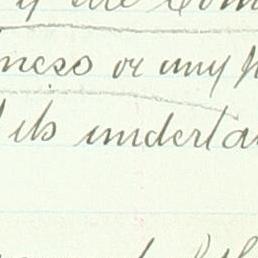 if the Com
ness or any p
its underta